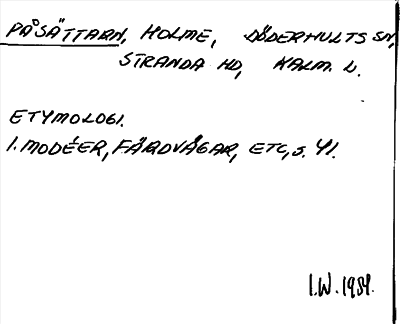 PÅSÄTTARN, HOLME, DÖDERHULTS SN,
STRANDA HD, KALM. L.
ETYMOLOGI.
I. MODÉER, FÄRDVÄGAR, ETC, s. 41.
I.W. 1984.